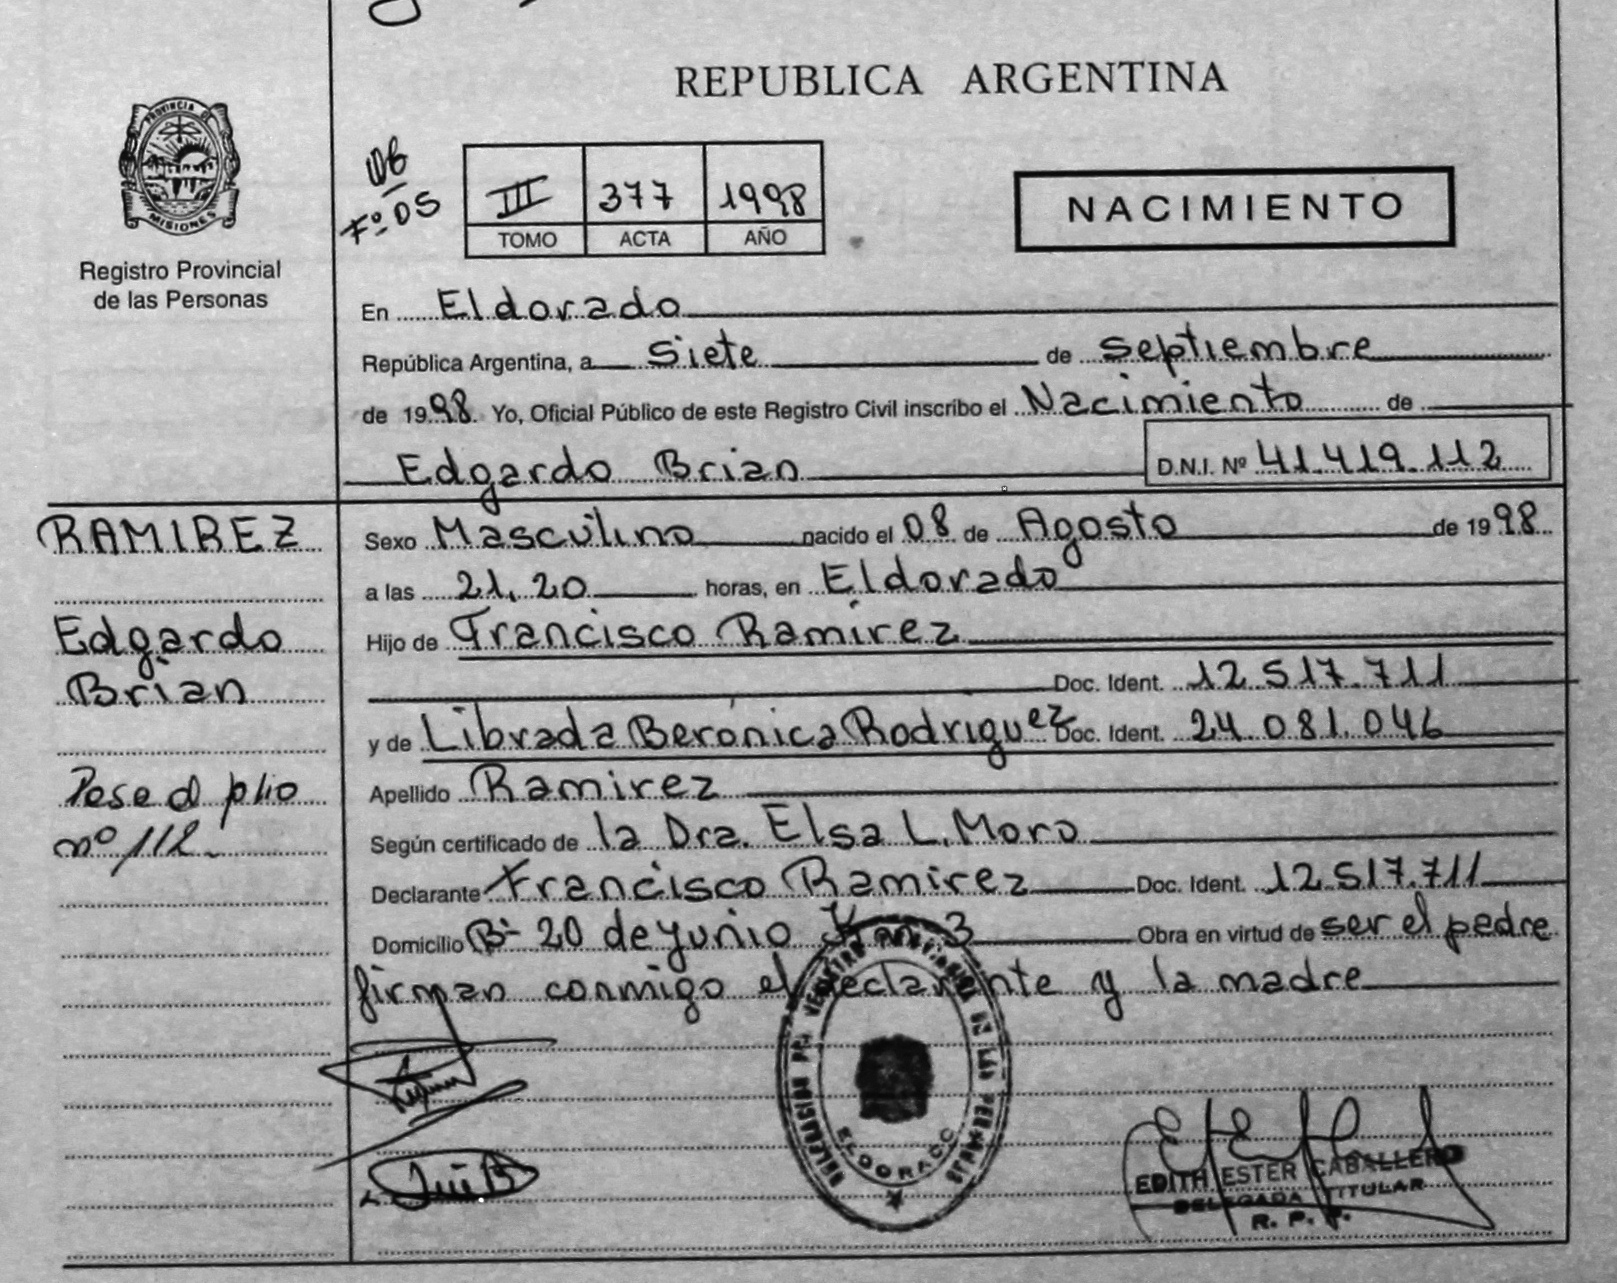 REPUBLICA ARGENTINA
PROVINCIA DE
MISIONES
Registro Provincial
de las Personas
Fº 05
III 377 1998
TOMO ACTA AÑO
NACIMIENTO
En Eldorado
República Argentina, a siete de septiembre
de 1998 Yo, Oficial Público de este Registro Civil inscribo el Nacimiento de
Edgardo Brian D.N.I. Nº 41.419.112
RAMIREZ
Edgardo
Brian
nº 112
Sexo Masculino nacido el 08 de Agosto de 1998
a las 21.20 horas, en Eldorado
Hijo de Francisco Ramírez
Doc. Ident. 12.517.711
y de Librada Berónica Rodriguez Doc. Ident. 24.081.046
Apellido Ramirez
Según certificado de la Dra. Elsa L. Moro
Declarante Francisco Ramirez Doc. Ident. 12.517.711
Domicilio Bº 20 de junio Km. 3 Obra en virtud de ser el padre
firman conmigo el declarante y la madre
EDITH ESTER CABALLERO
DELEGADA TITULAR
R. P. P.